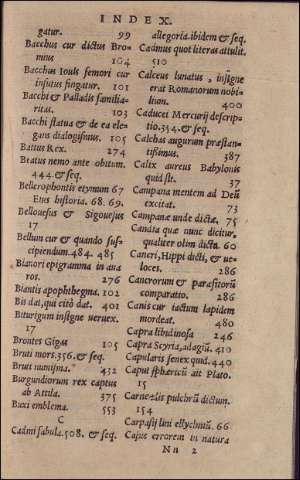 INDEX.
gatur. 99
Bacchus cur dictus Bro-
mius 104
Bacchus Iouis femori cur
insutus fingatur. 101
Bacchi & Palladis familia-
ritas. 103
Bacchi statua & de ea ele-
gans dialogismus. 105
Battus Rex. 274
Beatus nemo ante obitum.
444. & seq.
Bellerophontis etymum 67
Eius historia. 68. 69.
Bellouesus & Sigouesus
17
Bellum cur & quando sus-
cipiendum. 484. 485
Bianori epigramma in aua
ros. 276
Biantis apophthegma. 102
Bis dat, qui citò dat. 401
Biturigum insigne veruex.
17
Brontes Gigas 105
Bruti mors. 356. & seq.
Bruti numisma. 452
Burgundiorum rex captus
ab Attila. 375
Buxi emblema. 553
C
Cadmi fabula. 508. & seq.
allegoria. ibidem & seq.
Cadmus quot literas attulit.
510
Calceus lunatus, insigne
erat Romanorum nobi-
lium. 400
Caducei Mercurij descrip-
tio. 354. & seq.
Calchas augurum præstan-
tissimus. 387
Calix aureus Babylonis
quid sit. 37
Campana mentem ad Deū
excitat. 73
Campanæ unde dictæ. 75
Candia quæ nunc dicitur,
qualiter olim dicta. 60
Cancri, Hippi dicti, & ve-
loces. 286
Cancrorum & parasitorū
comparatio. 286
Canis cur iactum lapidem
mordeat. 480
Capra libidinosa 246
Capra Scyria, adagiū. 410
Capularis senex quid. 440
Caput sphæricū ait Plato.
15
Carneolus pulchrū dictum.
154
Carpasij lini ellychniū. 66
Cajus errorem in natura
Nn 2